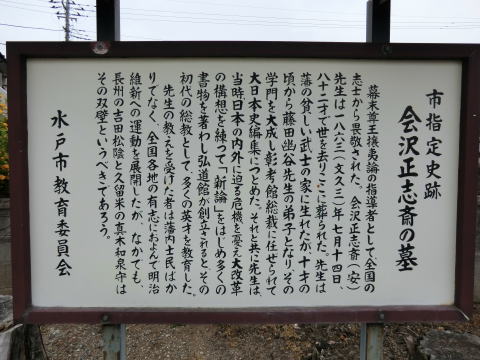 市指定史跡
会沢正志斎の墓
幕末尊王攘夷論の指導者として、全国の
志士から畏敬された、会沢正志斎（安）
先生は一八六三（文久三）年七月十四日、
八十二才で世を去りここに葬られた。先生は
藩の貧しい武士の家に生れたが、十才の
頃から藤田幽谷先生の弟子となりその
学門を大成し彰考館総裁に任せられて
大日本史編集につとめた。それと共に先生は、
当時日本の内外に迫る危機を憂え大改革
の構想を練って「新論」をはじめ多くの
書物を著わし弘道館が創立されるとその
初代の総教として、多くの英才を教育した。
先生の教えを受けた者は藩内士民ばか
りでなく、全国各地の有志におよんで明治
維新への運動を展開したが、なかでも、
長州の吉田松陰と久留米の真木和泉守は
その双壁というべきであろう。
水戸市教育委員会